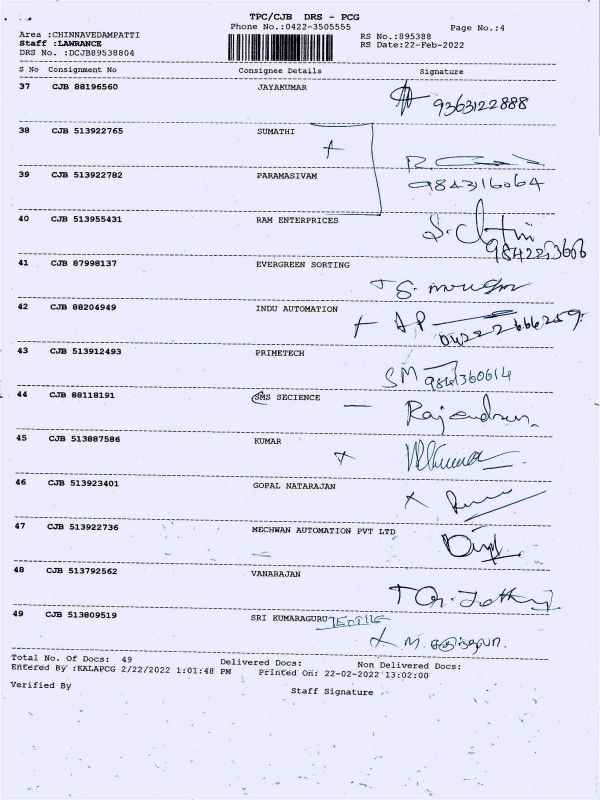 TPC/CJB DRS - PCG
Phone No.:0422-3505555 Page No.:4
Area :CHINNAVEDAMPATTI RS No.:895388
Staff :LAWRANCE RS Date:22-Feb-2022
DRS No. :DCJB89538804
S No Consignment No Consignee Details Signature
37 CJB 88196560 JAYAKUMAR
9363122888
38 CJB 513922765 SUMATHI
39 CJB 513922782 PARAMASIVAM
9843116064
40 CJB 513955431 RAM ENTERPRICES
41 CJB 87998137 EVERGREEN SORTING
42 CJB 88204949 INDU AUTOMATION
AP
43 CJB 513912493 PRIMETECH
SM
44 CJB 88118191 SMS SECIENCE
Rajendran
45 CJB 513887586 KUMAR
46 CJB 513923401 GOPAL NATARAJAN
47 CJB 513922736 MECHWAN AUTOMATION PVT LTD
48 CJB 513792562 VANARAJAN
49 CJB 513809519 SRI KUMARAGURU
Total No. Of Docs: 49 Delivered Docs: Non Delivered Docs:
Entered By :KALAPCG 2/22/2022 1:01:48 PM Printed On: 22-02-2022 13:02:00
Verified By Staff Signature